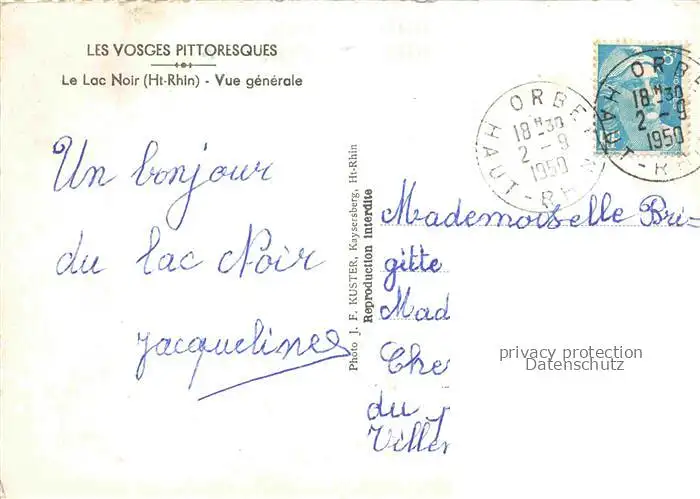 LES VOSGES PITTORESQUES
Le Lac Noir (Ht-Rhin) - Vue générale
Un bonjour
du lac Noir
Jacqueline
Photo J. F. KUSTER, Kaysersberg, Ht-Rhin
Reproduction interdite
ORBEY
18H30
2-9
1950
HAUT-RHIN
ORBEY
18H30
2-9
1950
HAUT-RHIN
Mademoiselle Bri-
gitte
Mad
Che
du
Viller
privacy protection
Datenschutz